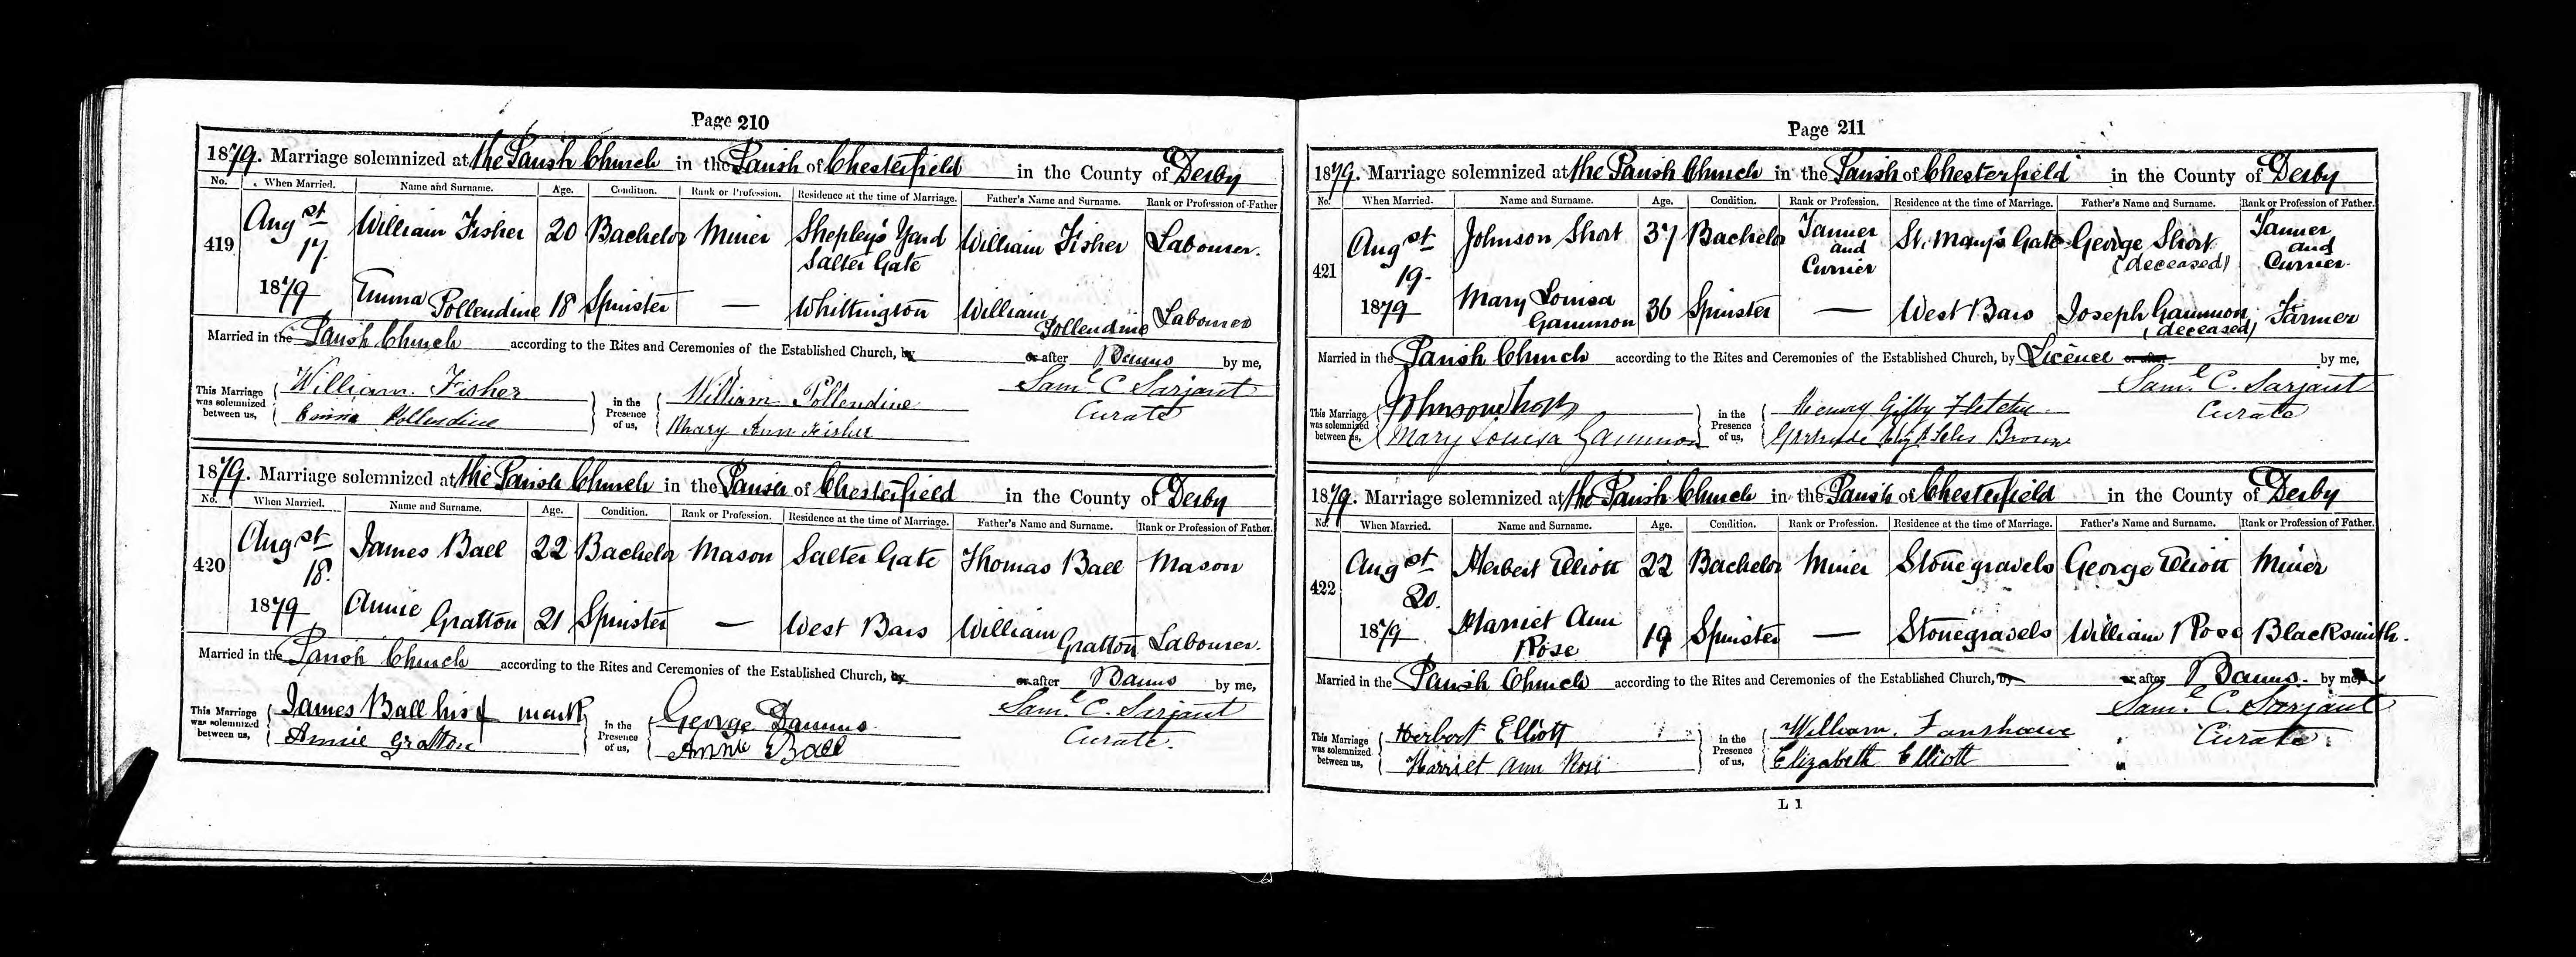 Page 210
1879. Marriage solemnized at the Parish Church in the Parish of Chesterfield in the County of Derby
No. When Married. Name and Surname. Age. Condition. Rank or Profession. Residence at the time of Marriage. Father's Name and Surname. Rank or Profession of Father
419 Augst 17. 1879 William Fisher 20 Bachelor Miner Shepley's Yard Salter Gate William Fisher Labourer.
Emma Pollendine 18 Spinster — Whittington William Pollendine Labourer
Married in the Parish Church according to the Rites and Ceremonies of the Established Church, by or after Banns by me,
This Marriage was solemnized between us, William Fisher Emma Pollendine in the Presence of us, William Pollendine Mary Ann Fisher
Saml. C. Sarjant Curate
1879. Marriage solemnized at the Parish Church in the Parish of Chesterfield in the County of Derby
No. When Married. Name and Surname. Age. Condition. Rank or Profession. Residence at the time of Marriage. Father's Name and Surname. Rank or Profession of Father.
420 Augst 18. 1879 James Ball 22 Bachelor Mason Salter Gate Thomas Ball Mason
Annie Gratton 21 Spinster — West Bars William Gratton Labourer.
Married in the Parish Church according to the Rites and Ceremonies of the Established Church, by or after Banns by me,
This Marriage was solemnized between us, James Ball his X mark Annie Gratton in the Presence of us, George Damms Annie Ball
Saml. C. Sarjant Curate.
Page 211
1879. Marriage solemnized at the Parish Church in the Parish of Chesterfield in the County of Derby
No. When Married. Name and Surname. Age. Condition. Rank or Profession. Residence at the time of Marriage. Father's Name and Surname. Rank or Profession of Father.
421 Augst 19. 1879 Johnson Short 37 Bachelor Tanner and Currier St. Mary's Gate George Short (deceased) Tanner and Currier.
Mary Louisa Gammon 36 Spinster — West Bars Joseph Gammon (deceased) Farmer
Married in the Parish Church according to the Rites and Ceremonies of the Established Church, by Licence or after by me,
This Marriage was solemnized between us, Johnson Short Mary Louisa Gammon in the Presence of us, Henry Fletcher Gertrude Brown
Saml. C. Sarjant Curate
1879. Marriage solemnized at the Parish Church in the Parish of Chesterfield in the County of Derby
No. When Married. Name and Surname. Age. Condition. Rank or Profession. Residence at the time of Marriage. Father's Name and Surname. Rank or Profession of Father.
422 Augst 20. 1879 Herbert Elliott 22 Bachelor Miner Stonegravels George Elliott Miner
Harriet Ann Rose 19 Spinster — Stonegravels William Rose Blacksmith.
Married in the Parish Church according to the Rites and Ceremonies of the Established Church, by or after Banns. by me,
This Marriage was solemnized between us, Herbert Elliott Harriet Ann Rose in the Presence of us, William Fanshawe Elizabeth Elliott
Saml. C. Sarjant Curate.
L 1